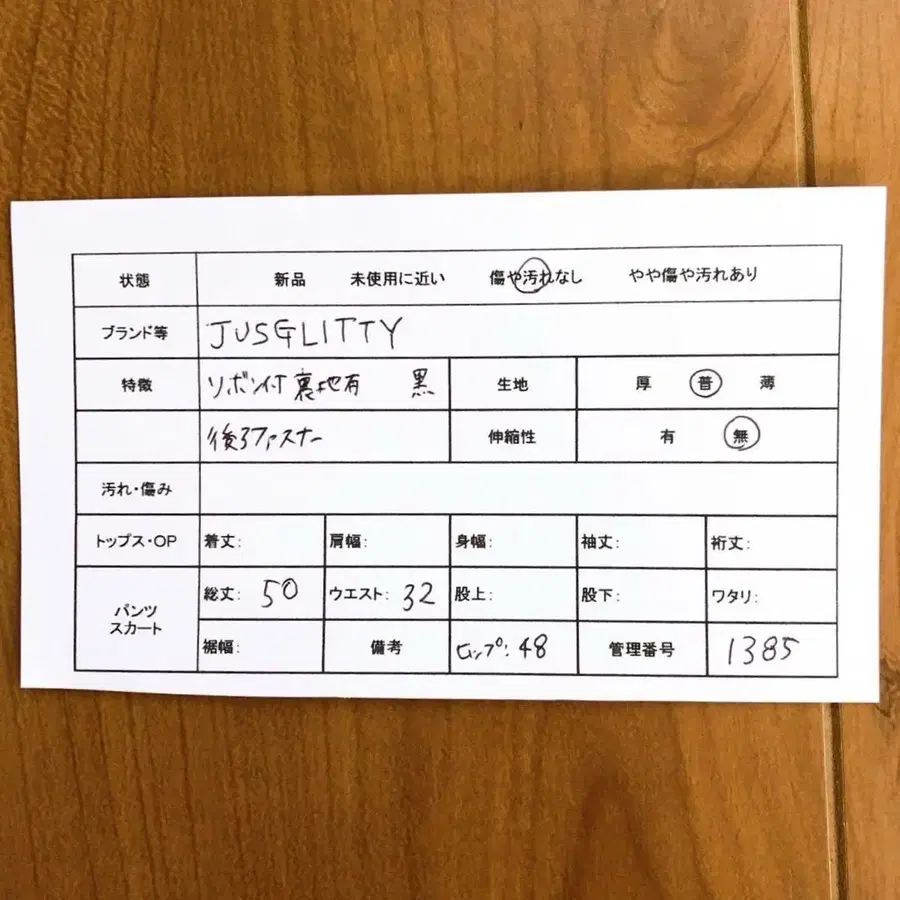 状態 新品 未使用に近い 傷や汚れなし やや傷や汚れあり
ブランド等 JUSGLITTY
特徴 リボン付 裏地有 黒 生地 厚 普 薄
後ろファスナー 伸縮性 有 無
汚れ・傷み
トップス・OP 着丈: 肩幅: 身幅: 袖丈: 裄丈:
パンツ スカート 総丈: 50 ウエスト: 32 股上: 股下: ワタリ:
裾幅: 備考 ヒップ: 48 管理番号 1385